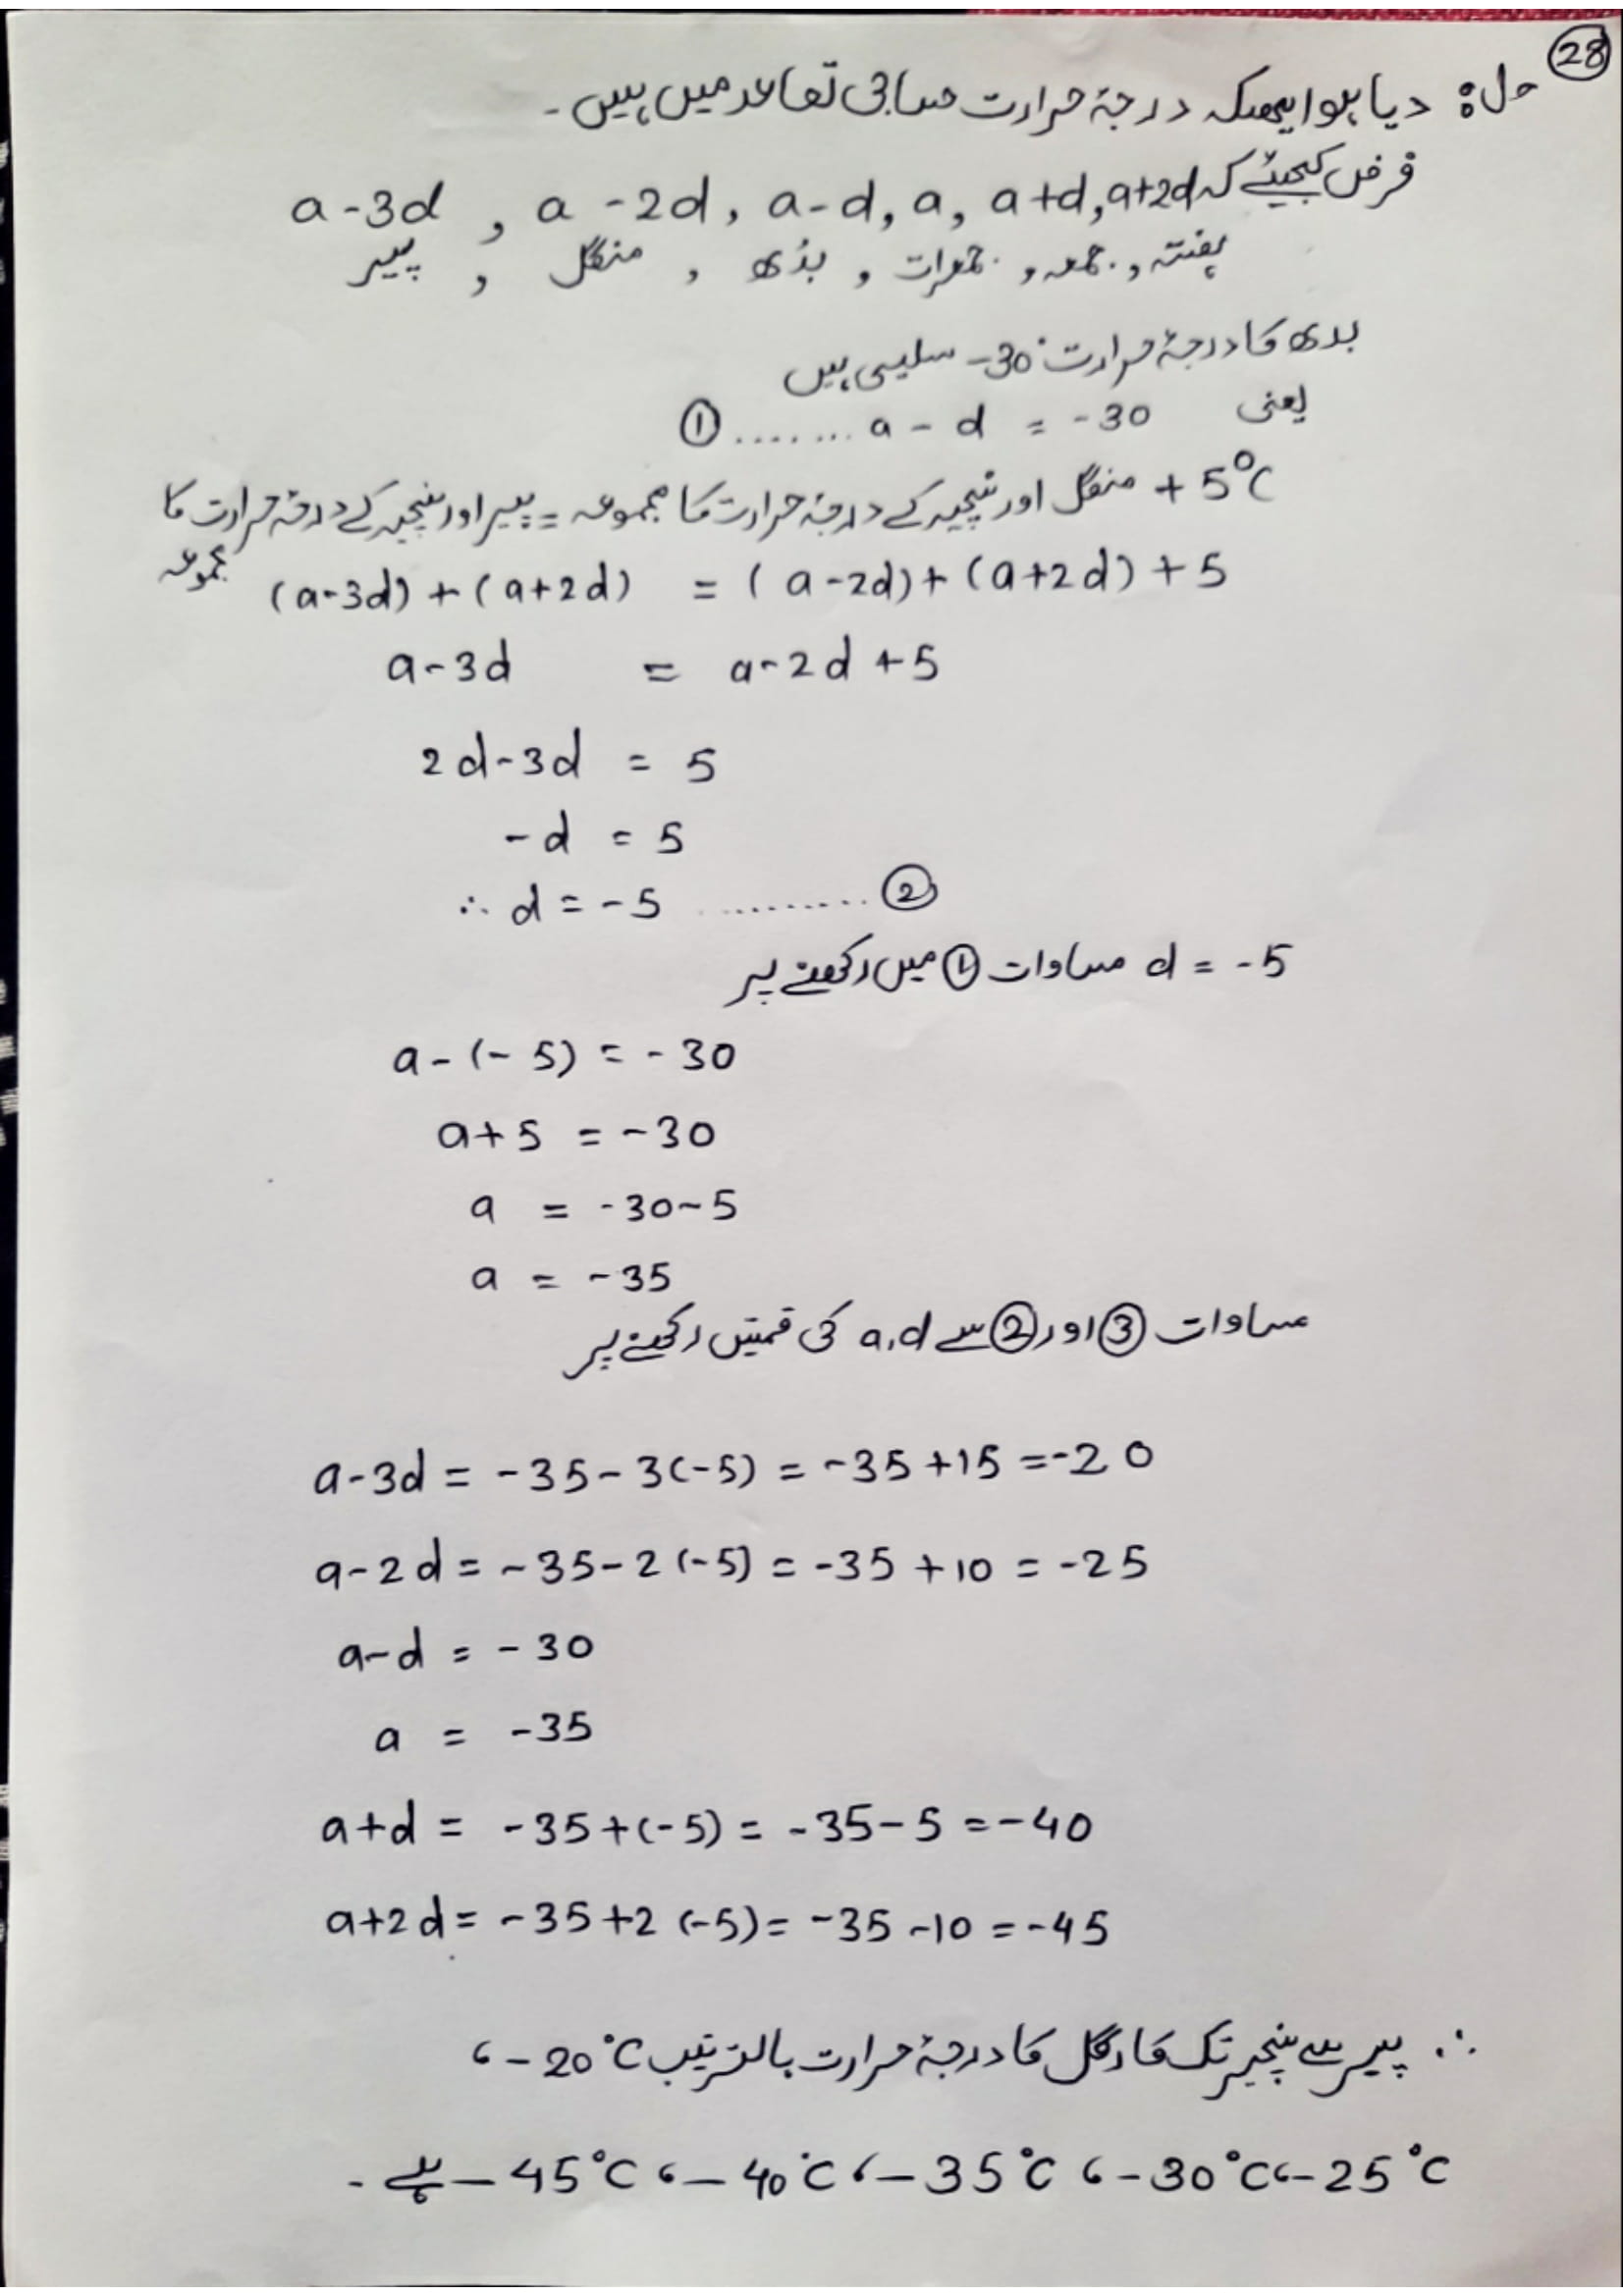 28
حل: دیا ہوا ہے کہ درجۂ حرارت حسابی تصاعد میں ہیں۔
فرض کیجیئے کہ a-3d , a-2d, a-d, a, a+d, a+2d
پیر , منگل , بدھ , جمعرات , جمعہ , ہفتہ
بدھ کا درجۂ حرارت -30° سلیسی ہیں
یعنی a - d = -30 ........ ①
منگل اور سنیچر کے درجۂ حرارت کا مجموعہ = پیر اور سنیچر کے درجۂ حرارت کا مجموعہ + 5°C
(a-3d) + (a+2d) = (a-2d) + (a+2d) + 5
a-3d = a-2d +5
2d-3d = 5
-d = 5
∴ d = -5 .......... ②
d = -5 مساوات ① میں رکھنے پر
a-(-5) = -30
a+5 = -30
a = -30-5
a = -35
مساوات ③ اور ② سے a,d کی قمتیں رکھنے پر
a-3d = -35-3(-5) = -35+15 = -20
a-2d = -35-2(-5) = -35+10 = -25
a-d = -30
a = -35
a+d = -35+(-5) = -35-5 = -40
a+2d = -35+2(-5) = -35-10 = -45
∴ پیر سے سنیچر تک کا درجۂ حرارت بالترتیب -20°C،
-25°C، -30°C، -35°C، -40°C، -45°C ہے۔